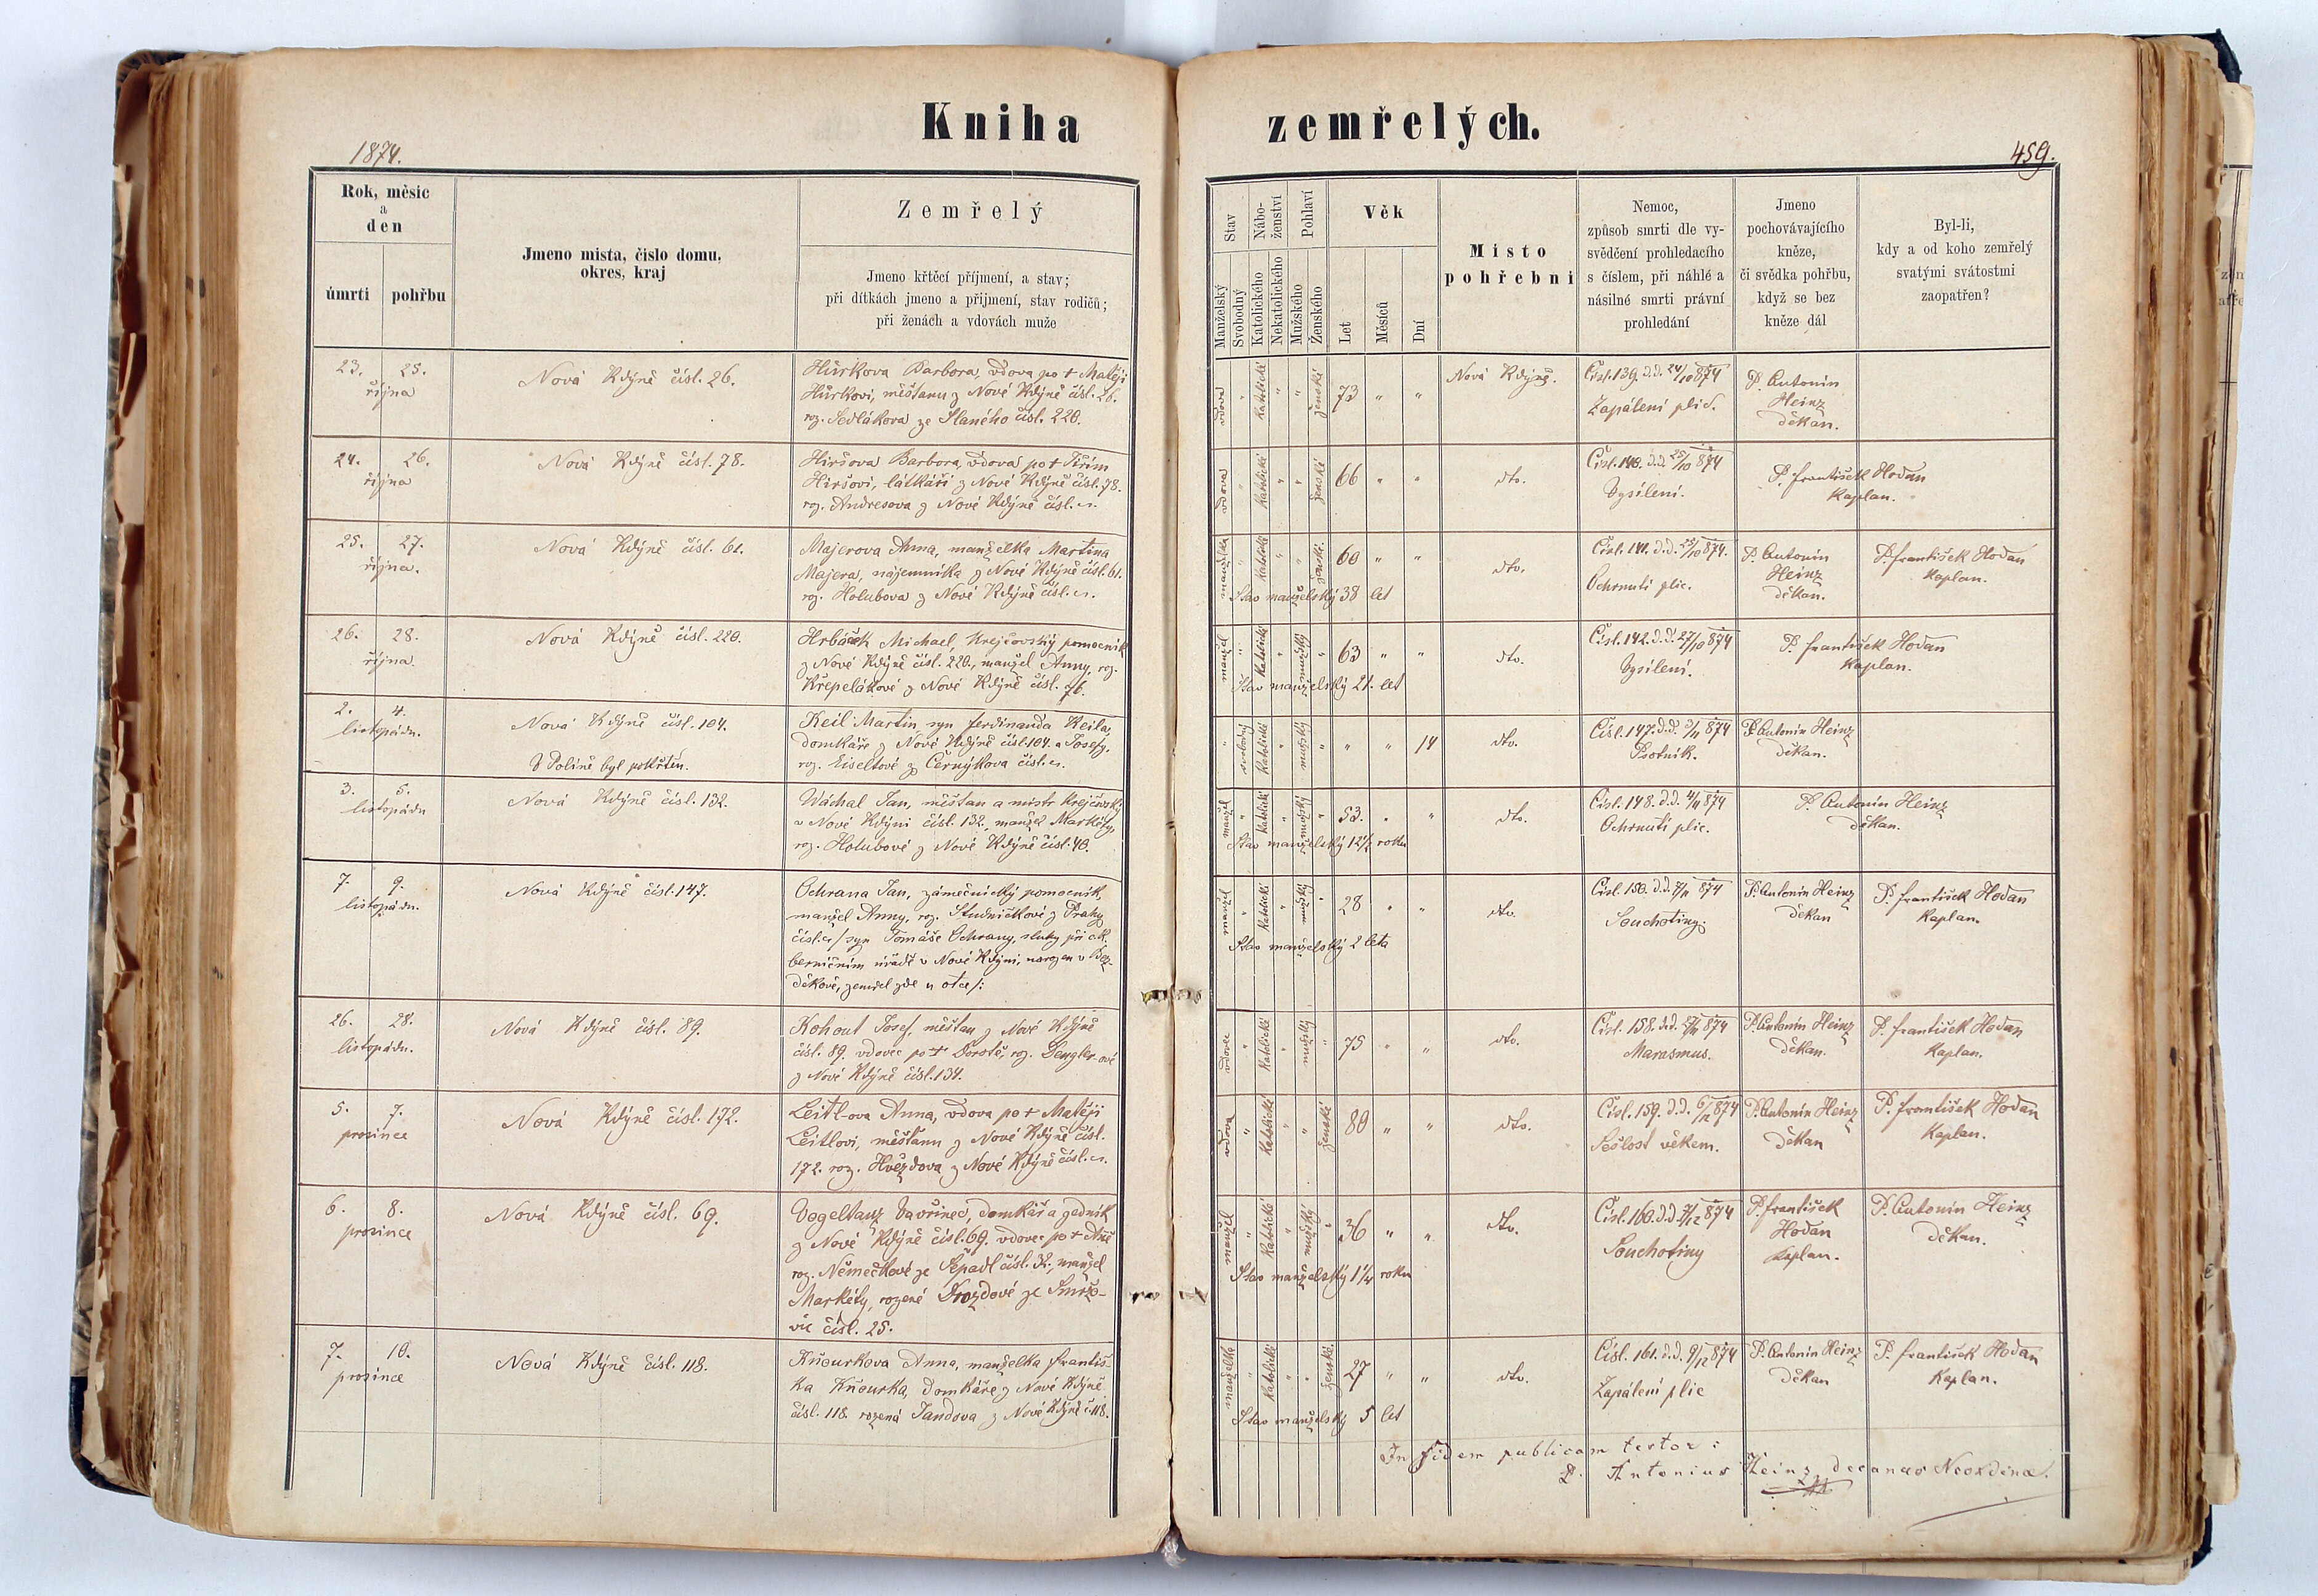 Kniha zemřelých.
1874.
459.
Rok, měsic
a
den
úmrti
pohřbu
Jmeno mista, čislo domu,
okres, kraj
Zemřelý
Jmeno křtěcí příjmení, a stav;
při dítkách jmeno a přijmení, stav rodičů;
při ženách a vdovách muže
Stav
Manželský
Svobodný
Nábo-
ženství
Katolického
Nekatolického
Pohlaví
Mužského
Ženského
Věk
Let
Měsíců
Dní
Místo
pohřebni
Nemoc,
způsob smrti dle vy-
svědčení prohledacího
s číslem, při náhlé a
násilné smrti právní
prohledání
Jmeno
pochovávajícího
kněze,
či svědka pohřbu,
když se bez
kněze dál
Byl-li,
kdy a od koho zemřelý
svatými svátostmi
zaopatřen?
23. 25.
října
Nová Kdýně čísl. 26.
Hůrkova Barbora, vdova po + Matěji
Hůrkovi, měšťanu z Nové Kdýně čísl. 26.
roz. Sedlákova ze Slaného čísl. 220.
vdova " Katolické " " ženské 73 " "
Nová Kdýně.
Čísl. 139. d.d. 24/10 874
Zapálení plic.
P. Antonin
Heinz
děkan.
24. 26.
října
Nová Kdýně čísl. 78.
Hiršova Barbora, vdova po + Jiřím
Hiršovi, látkáři z Nové Kdýně čísl. 78.
roz. Andresova z Nové Kdýně čísl. "
vdova " Katolické " " ženské 66 " "
dto.
Čísl. 140. d.d. 25/10 874
Vysílení.
P. František Hodan
Kaplan.
25. 27.
října.
Nová Kdýně čísl. 61.
Majerova Anna, manželka Martina
Majera, nájemníka z Nové Kdýně čísl. 61.
roz. Holubova z Nové Kdýně čísl. "
manželka " Katolické " " ženské. 60 " "
Stav manželský 38 let
dto.
Čísl. 141. d.d. 25/10 874.
Ochrnutí plic.
P. Antonin
Heinz
děkan.
P. František Hodan
Kaplan.
26. 28.
října.
Nová Kdýně čísl. 220.
Hrbáček Michael, krejčovský pomocník
z Nové Kdýně čísl. 220., manžel Anny, roz.
Křepelákové z Nové Kdýně čísl. 76.
manžel " Katolické " mužský " 63 " "
Stav manželský 21. let
dto.
Čísl. 142. d.d. 27/10 874
Vysílení.
P. František Hodan
Kaplan.
2. 4.
listopádu.
Nová Kdýně čísl. 104.
V Polině byl pokřtěn.
Keil Martin, syn Ferdinanda Keila,
domkáře z Nové Kdýně čísl. 104. a Josefy,
roz. Eiseltové z Černýkova čísl. "
" svobodný Katolické " mužský " " " 14
dto.
Čísl. 147. d.d. 3/11 874
Psotník.
P. Antonin Heinz
děkan.
3. 5.
listopádu
Nová Kdýně čísl. 132.
Wáchal Jan, měšťan a mistr krejčovský
v Nové Kdýni čísl. 132., manžel Markéty,
roz. Holubové z Nové Kdýně čísl. 40.
manžel " Katolické " mužský " 53. " "
Stav manželský 12 1/2 roku
dto.
Čísl. 148. d.d. 4/11 874
Ochrnutí plic.
P. Antonin Heinz
děkan.
7. 9.
listopádu.
Nová Kdýně čísl. 147.
Ochrana Jan, zámečnický pomocník,
manžel Anny, roz. Studničkové z Prahy
čísl. " / syn Tomáše Ochrany, sluhy při c.k.
berničním úřadě v Nové Kdýni, narozen v Bez-
děkově, zemřel zde u otce /:
manžel " Katolické " mužský " 28 " "
Stav manželský 2 léta
dto.
Čísl. 150. d.d. 7/11 874
Souchotiny.
P. Antonin Heinz
děkan
P. František Hodan
Kaplan.
26. 28.
listopádu.
Nová Kdýně čísl. 89.
Kohout Josef, měšťan z Nové Kdýně
čísl. 89. vdovec po + Dorotě, roz. Denglerové
z Nové Kdýně čísl. 134.
vdovec " Katolické " mužský " 75 " "
dto.
Čísl. 158. d.d. 27/11 874
Marasmus.
P. Antonin Heinz
děkan.
P. František Hodan
Kaplan.
5. 7.
prosince
Nová Kdýně čísl. 172.
Leitlova Anna, vdova po + Matěji
Leitlovi, měšťanu z Nové Kdýně čísl.
172. roz. Hvězdova z Nové Kdýně čísl. "
vdova " Katolické " " ženské 80 " "
dto.
Čísl. 159. d.d. 6/12 874
Sešlost věkem.
P. Antonin Heinz
děkan
P. František Hodan
Kaplan.
6. 8.
prosince
Nová Kdýně čísl. 69.
Vogeltanz Vavřinec, domkář a zedník
z Nové Kdýně čísl. 69. vdovec po + Aně
roz. Němečkové ze Spádl čísl. 32., manžel
Markéty, rozené Drozdové ze Smržo-
vic čísl. 25.
manžel " Katolické " mužský " 36 " "
Stav manželský 1 1/4 roku
dto.
Čísl. 160. d.d. 7/12 874
Souchotiny
P. František
Hodan
Kaplan.
P. Antonin Heinz
děkan.
7. 10.
prosince
Nová Kdýně čísl. 118.
Kňourkova Anna, manželka Františ-
ka Kňourka, domkáře z Nové Kdýně
čísl. 118 rozená Jandova z Nové Kdýně č. 118.
manželka " Katolické " " ženské. 27 " "
Stav manželský 5 let
dto.
Čísl. 161. d.d. 9/12 874
Zapálení plic
P. Antonin Heinz
děkan
P. František Hodan
Kaplan.
In fidem publicam testor:
P. Antonius Heinz, decanus Neokdinae.